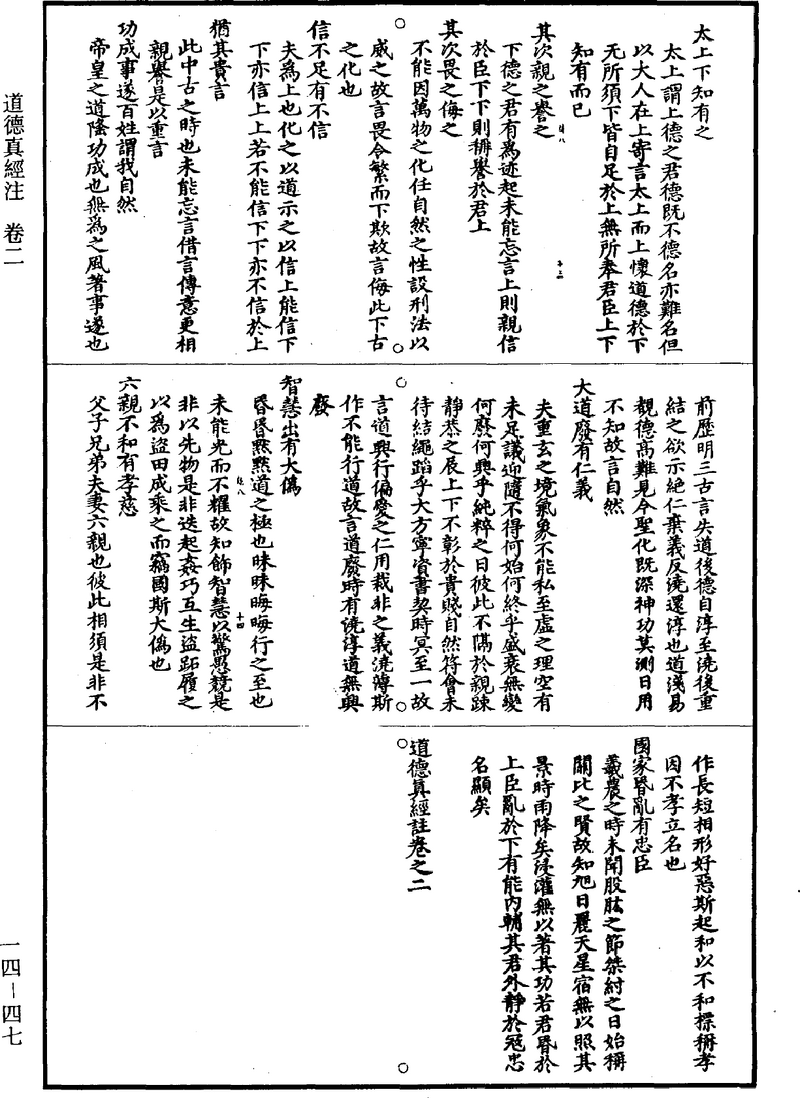 太上下知有之
太上謂上德之君德既不德名亦難名但
以大人在上寄言太上而上懷道德於下
无所須下皆自足於上無所奉君臣上下
知有而已
其次親之譽之
下德之君有爲迹起未能忘言上則親信
於臣下下則稱譽於君上
其次畏之侮之
不能因萬物之化任自然之性設刑法以
威之故言畏令繁而下欺故言侮此下古
之化也
信不足有不信
夫爲上也化之以道示之以信上能信下
下亦信上上若不能信下下亦不信於上
猶其貴言
此中古之時也未能忘言借言傳意更相
親譽是以重言
功成事遂百姓謂我自然
帝皇之道隆功成也無爲之風著事遂也
前歷明三古言失道後德自淳至澆後重
結之欲示絶仁棄義反澆還淳也道淺易
覩德高難見今聖化既深神功莫測日用
不知故言自然
大道廢有仁義
夫重玄之境氣象不能私至虛之理空有
未足議迎隨不得何始何終乎盛衰無變
何廢何興乎純粹之日彼此不隔於親踈
靜恭之辰上下不彰於貴賤自然符會未
待結繩蹈乎大方寧資書契時冥至一故
言道興行偏愛之仁用裁非之義澆薄斯
作不能行道故言道廢時有澆淳道無興
廢
智慧出有大僞
昏昏默默道之極也昧昧晦晦行之至也
未能光而不耀故知飾智慧以驚愚競是
非以先物是非迭起姦巧互生盜跖履之
以爲盜田成乘之而竊國斯大僞也
六親不和有孝慈
父子兄弟夫妻六親也彼此相須是非不
作長短相形好惡斯起和以不和標稱孝
因不孝立名也
國家昬亂有忠臣
羲農之時未聞股肱之節桀紂之日始稱
關比之賢故知旭日麗天星宿無以照其
景時雨降矣浸灌無以著其功若君昬於
上臣亂於下有能内輔其君外靜於冦忠
名顯矣
道德真經註卷之二
道德真經注 卷二
一四－四七